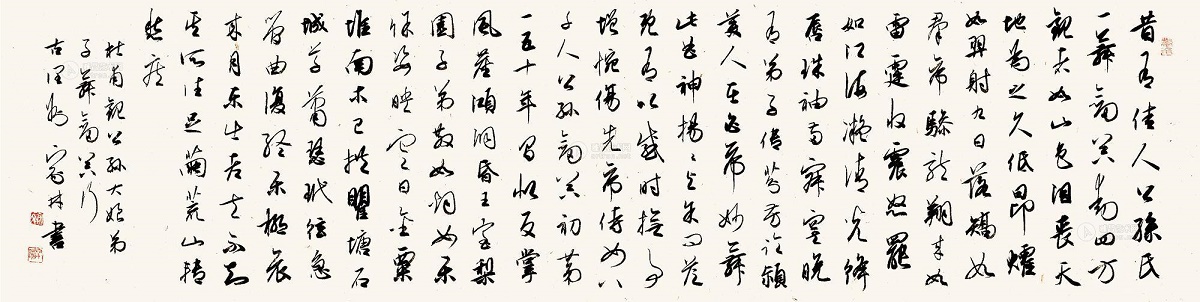 昔有佳人公孫氏
一舞劍器動四方
觀者如山色沮喪天
地為之久低昂燿
如羿射九日落矯如
羣帝驂龍翔來如
雷霆收震怒罷
如江海凝清光絳
脣珠袖兩寂寞晚
有弟子傳芬芳臨潁
美人在白帝妙舞
此曲神揚〻與余問答
既有以感時撫事
增惋傷先帝侍女八
千人公孫劍器初第
一五十年間似反掌
風塵澒洞昏王室梨
園子弟散如煙女樂
餘姿映寒日金粟
堆南木已拱瞿塘石
城草蕭瑟玳筵急
管曲復終樂極哀
來月東出老夫不知
其所往足繭荒山轉
愁疾
杜甫觀公孫大娘弟
子舞劍器行
古里 家林書